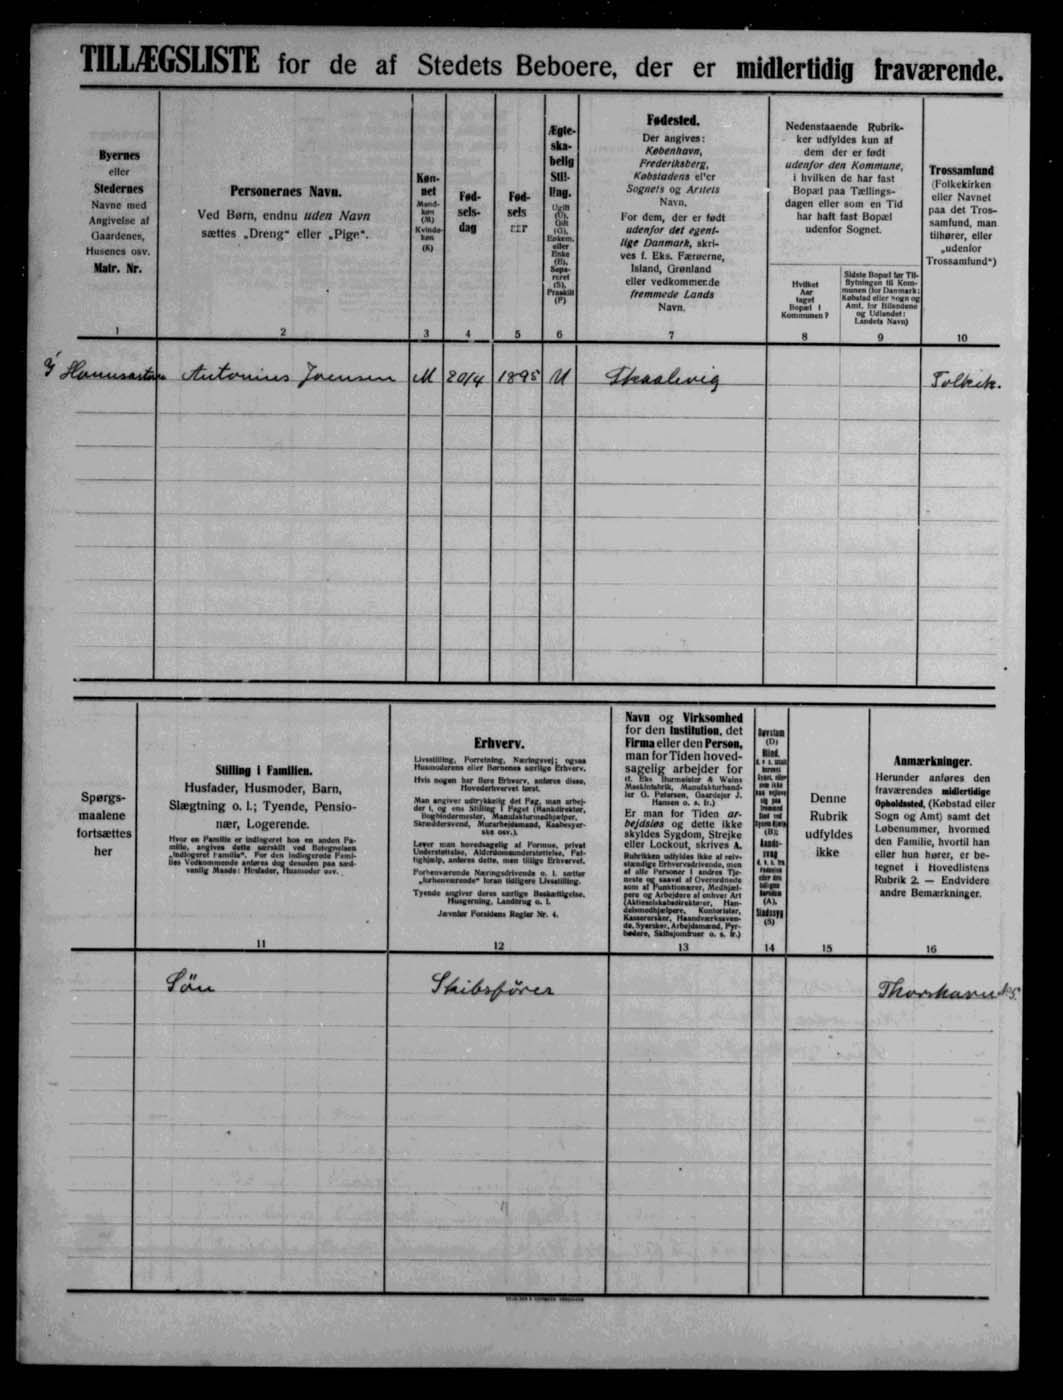 TILLÆGSLISTE for de af Stedets Beboere, der er midlertidig fraværende.
Byernes
eller
Stedernes
Navne med
Angivelse af
Gaardenes,
Husenes osv.
Matr. Nr.
1
Personernes Navn.
Ved Børn, endnu uden Navn
sættes „Dreng“ eller „Pige“.
2
Køn-
net
Mand-
køn
(M)
Kvinde-
køn
(K)
3
Fød-
sels-
dag
4
Fød-
sels
aar
5
Ægte-
ska-
belig
Stil-
ling.
Ugift
(U),
Gift
(G),
Enkem.
eller
Enke
(E),
Sepa-
reret
(S),
Fraskilt
(F)
6
Fødested.
Der angives:
København,
Frederiksberg,
Købstadens eller
Sognets og Amtets
Navn.
For dem, der er født
udenfor det egent-
lige Danmark, skri-
ves f. Eks. Færøerne,
Island, Grønland
eller vedkommende
fremmede Lands
Navn.
7
Nedenstaaende Rubrik-
ker udfyldes kun af
dem der er født
udenfor den Kommune,
i hvilken de har fast
Bopæl paa Tællings-
dagen eller som en Tid
har haft fast Bopæl
udenfor Sognet.
Hvilket
Aar
taget
Bopæl i
Kommunen?
8
Sidste Bopæl før Til-
flytningen til Kom-
munen (for Danmark:
Købstad eller Sogn og
Amt, for Bilandene
og Udlandet:
Landets Navn)
9
Trossamfund
(Folkekirken
eller Navnet
paa det Tros-
samfund, man
tilhører, eller
„udenfor
Trossamfund“)
10
Antonius Joensen M 20/4 1895 U Skaalevig Folkek.
Spørgs-
maalene
fortsættes
her
Stilling i Familien.
Husfader, Husmoder, Barn,
Slægtning o. l.; Tyende, Pensio-
nær, Logerende.
Hvor en Familie er indlogeret hos en anden Fa-
milie, angives dette særskilt ved Betegnelsen
„Indlogeret Familie“. For den indlogerede Fami-
lies Vedkommende anføres dog desuden paa sæd-
vanlig Maade: Husfader, Husmoder osv.
11
Erhverv.
Livsstilling, Forretning, Næringsvej; ogsaa
Husmoderens eller Børnenes særlige Erhverv.
Hvis nogen har flere Erhverv, anføres disse,
Hovederhvervet først.
Man angiver udtrykkelig det Fag, man arbej-
der i, og ens Stilling i Faget (Bankdirektør,
Bogbindermester, Manufakturmedhjælper,
Skræddersvend, Murarbejdsmand, Kaabesyer-
ske osv.).
Lever man hovedsagelig af Formue, privat
Understøttelse, Alderdomsunderstøttelse, Fat-
tighjælp, anføres dette, men tillige Erhvervet.
Forhenværende Næringsdrivende o. l. sætter
„forhenværende“ foran tidligere Livsstilling.
Tyende angiver deres særlige Beskæftigelse,
Husgerning, Landbrug o. l.
Jævnfør Forsidens Regler Nr. 4.
12
Navn og Virksomhed
for den Institution, det
Firma eller den Person,
man for Tiden hoved-
sagelig arbejder for
(f. Eks Burmeister & Wains
Maskinfabrik, Manufakturhand-
ler G. Petersen, Gaardejer J.
Hansen o. s. fr.)
Er man for Tiden ar-
bejdsløs og dette ikke
skyldes Sygdom, Strejke
eller Lockout, skrives A.
Rubrikken udfyldes ikke af selv-
stændige Erhvervsdrivende, men
af alle Personer i andres Tje-
neste og saavel af Overordnede
som af Funktionærer, Medhjæl-
pere og Arbejdere af enhver Art
(Aktieselskabsdirektører, Han-
delsmedhjælpere, Kontorister,
Kassererkser, Haandværkssven-
de, Syersker, Arbejdsmænd, Fyr-
bødere, Skibsjomfruer o. s. fr.)
13
Døvstum
(D)
Blind,
(B);
Aands-
svag
(A),
Sindssyg
(S)
14
Denne
Rubrik
udfyldes
ikke
15
Anmærkninger.
Herunder anføres den
fraværendes midlertidige
Opholdssted, (Købstad eller
Sogn og Amt) samt det
Løbenummer, hvormed
den Familie, hvortil han
eller hun hører, er be-
tegnet i Hovedlistens
Rubrik 2. — Endvidere
andre Bemærkninger.
16
Søn Skibsfører Thorshavn